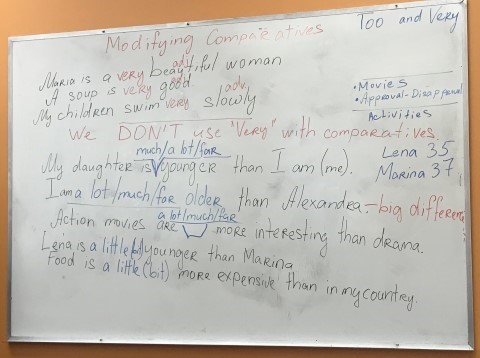 Too and Very
Modifying Comparatives
adj
Maria is a very beautiful woman
adj
A soup is very good
adv
My children swim very slowly
• Movies
• Approval - Disapproval
Activities
We DON'T use "Very" with comparatives.
much/a lot/far
My daughter is younger than I am (me).
Lena 35
Marina 37
I am a lot/much/far older than Alexandra. - big differen
a lot/much/far
Action movies are more interesting than drama.
Lena is a little bit younger than Marina
Food is a little (bit) more expensive than in my country.